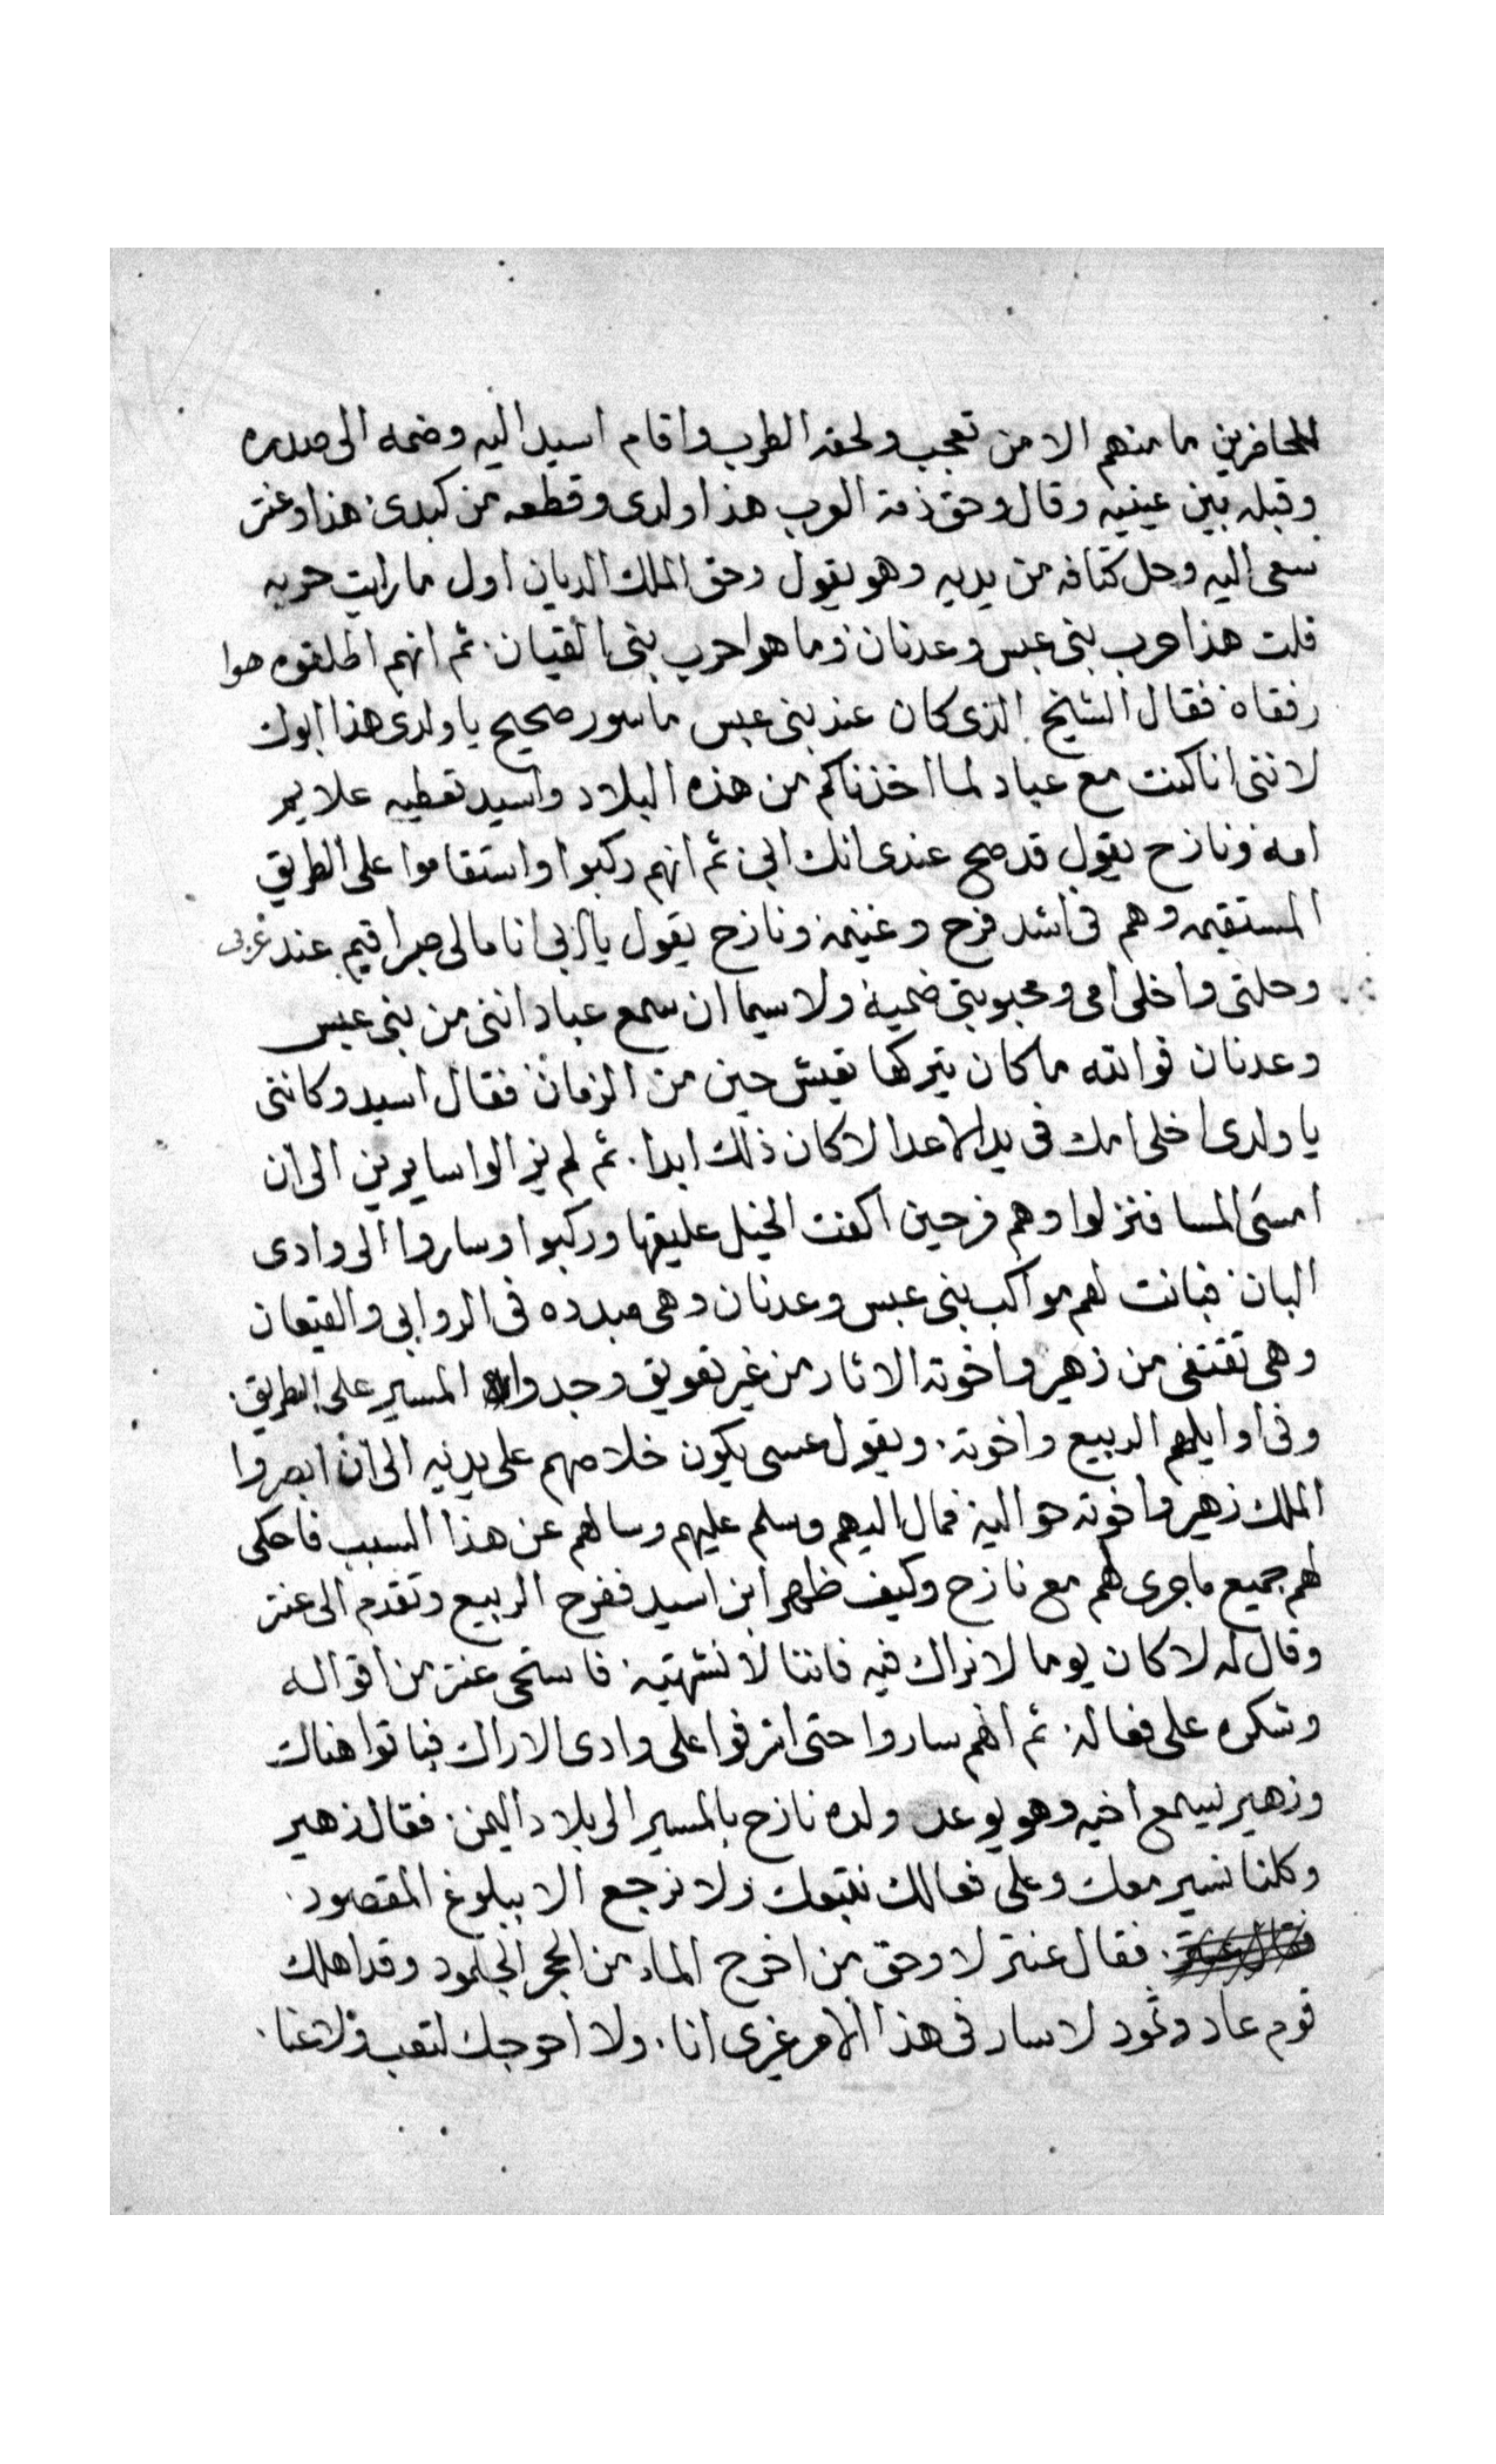 للحاضرين ما منهم الا من تعجب ولحقه الطرب واقام اسيد اليه وضمه الى صدره
وقبله بين عينيه وقال وحق ذمة العرب هذا ولدى وقطعه من كبدى هذا وعنتر
سعى اليه وحل كتافه من يديه وهو يقول وحق الملك الديان اول ما رايت حربه
قلت هذا حرب بنى عبس وعدنان وما هوا حرب بنى القيان ثم انهم اطلقوه هوا
رفقاه فقال الشيخ الذى كان عند بنى عبس ماسور صحيح يا ولدى هذا ابوك
لاننى انا كنت مع عباد لما اخذناكم من هذه البلاد واسيد تعطيه علايم
امه ونازح يقول قد صح عندى انك ابى ثم انهم ركبوا واستقاموا على الطريق
المستقيمه وهم فى اشد فرح وغنيمة ونازح يقول يا ابى انا مالى صبر اقيم عند عربى
وحلتى واخلى امى ومحبوبتى ضمية ولا سيما ان سمع عباد اننى من بنى عبس
وعدنان فوالله ما كان يتركها تعيش حين من الزمان فقال اسيد وكاننى
يا ولدى اخلى امك فى يد الاعدا لا كان ذلك ابدا. ثم لم يزالوا سايرين الى ان
امسى المسا فنزلوا وهم فرحين اكفت الخيل عليقها وركبوا وساروا الى وادى
البان فبانت لهم مواكب بنى عبس وعدنان وهى مبدده فى الروابى والقيعان
وهى تقتفى من زهير واخوته الاثار من غير تعويق وجدوا المسير على الطريق.
وفى اوايلهم الربيع واخوته. ويقول عسى يكون خلاصهم على يديه الى ان ابصروا
الملك زهير واخوته حواليه فمال اليهم وسلم عليهم وسالهم عن هذا السبب فاحكى
لهم جميع ما جرى لهم مع نازح وكيف ظهر ابن اسيد ففرح الربيع وتقدم الى عنتر
وقال له لا كان يوما لا نراك فيه فاننا لا نشتهيه فاستحى عنتر من اقواله
وشكره على فعاله ثم انهم ساروا حتى اشرفوا على وادى الاراك فباتوا هناك
وزهير يسمع اخيه وهو يوعد ولده نازح بالمسير الى بلاد اليمن فقال زهير
وكلنا نسير معك وعلى فعالك نتبعك ولا نرجع الا ببلوغ المقصود.
فقال عنتر لا وحق من اخرج الماء من الحجر الجلمود وقد اهلك
قوم عاد وثمود لا سار فى هذا الامر غيرى انا. ولا احوجك لتعب ولا عنا.